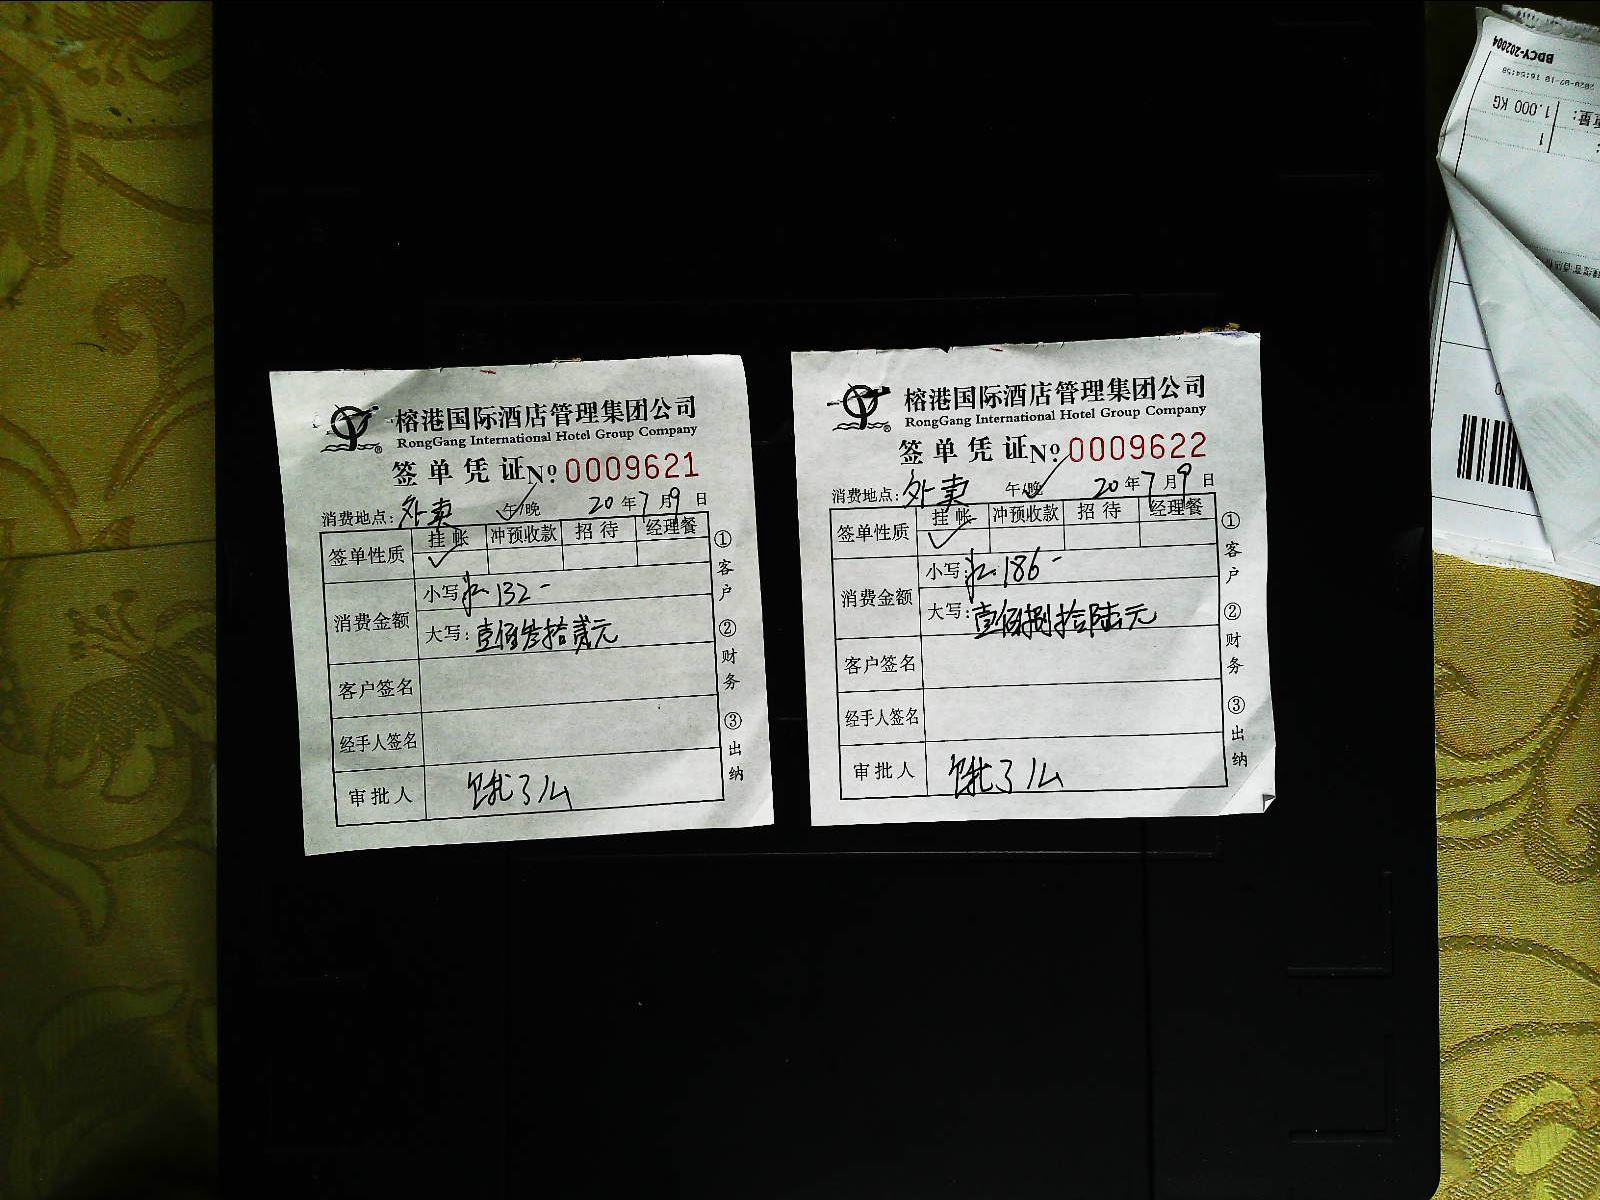 榕港国际酒店管理集团公司
RongGang International Hotel Group Company
签单凭证 No. 0009621
消费地点: 外卖 午/晚 20年7月9日
签单性质 挂帐 冲预收款 招待 经理餐
消费金额
小写: 132-
大写: 壹佰叁拾贰元
客户签名
经手人签名
审批人 饿了么
①客户 ②财务 ③出纳
榕港国际酒店管理集团公司
RongGang International Hotel Group Company
签单凭证 No. 0009622
消费地点: 外卖 午/晚 20年7月9日
签单性质 挂帐 冲预收款 招待 经理餐
消费金额
小写: 186-
大写: 壹佰捌拾陆元
客户签名
经手人签名
审批人 饿了么
①客户 ②财务 ③出纳
BDCY-202004
1.000 KG
1